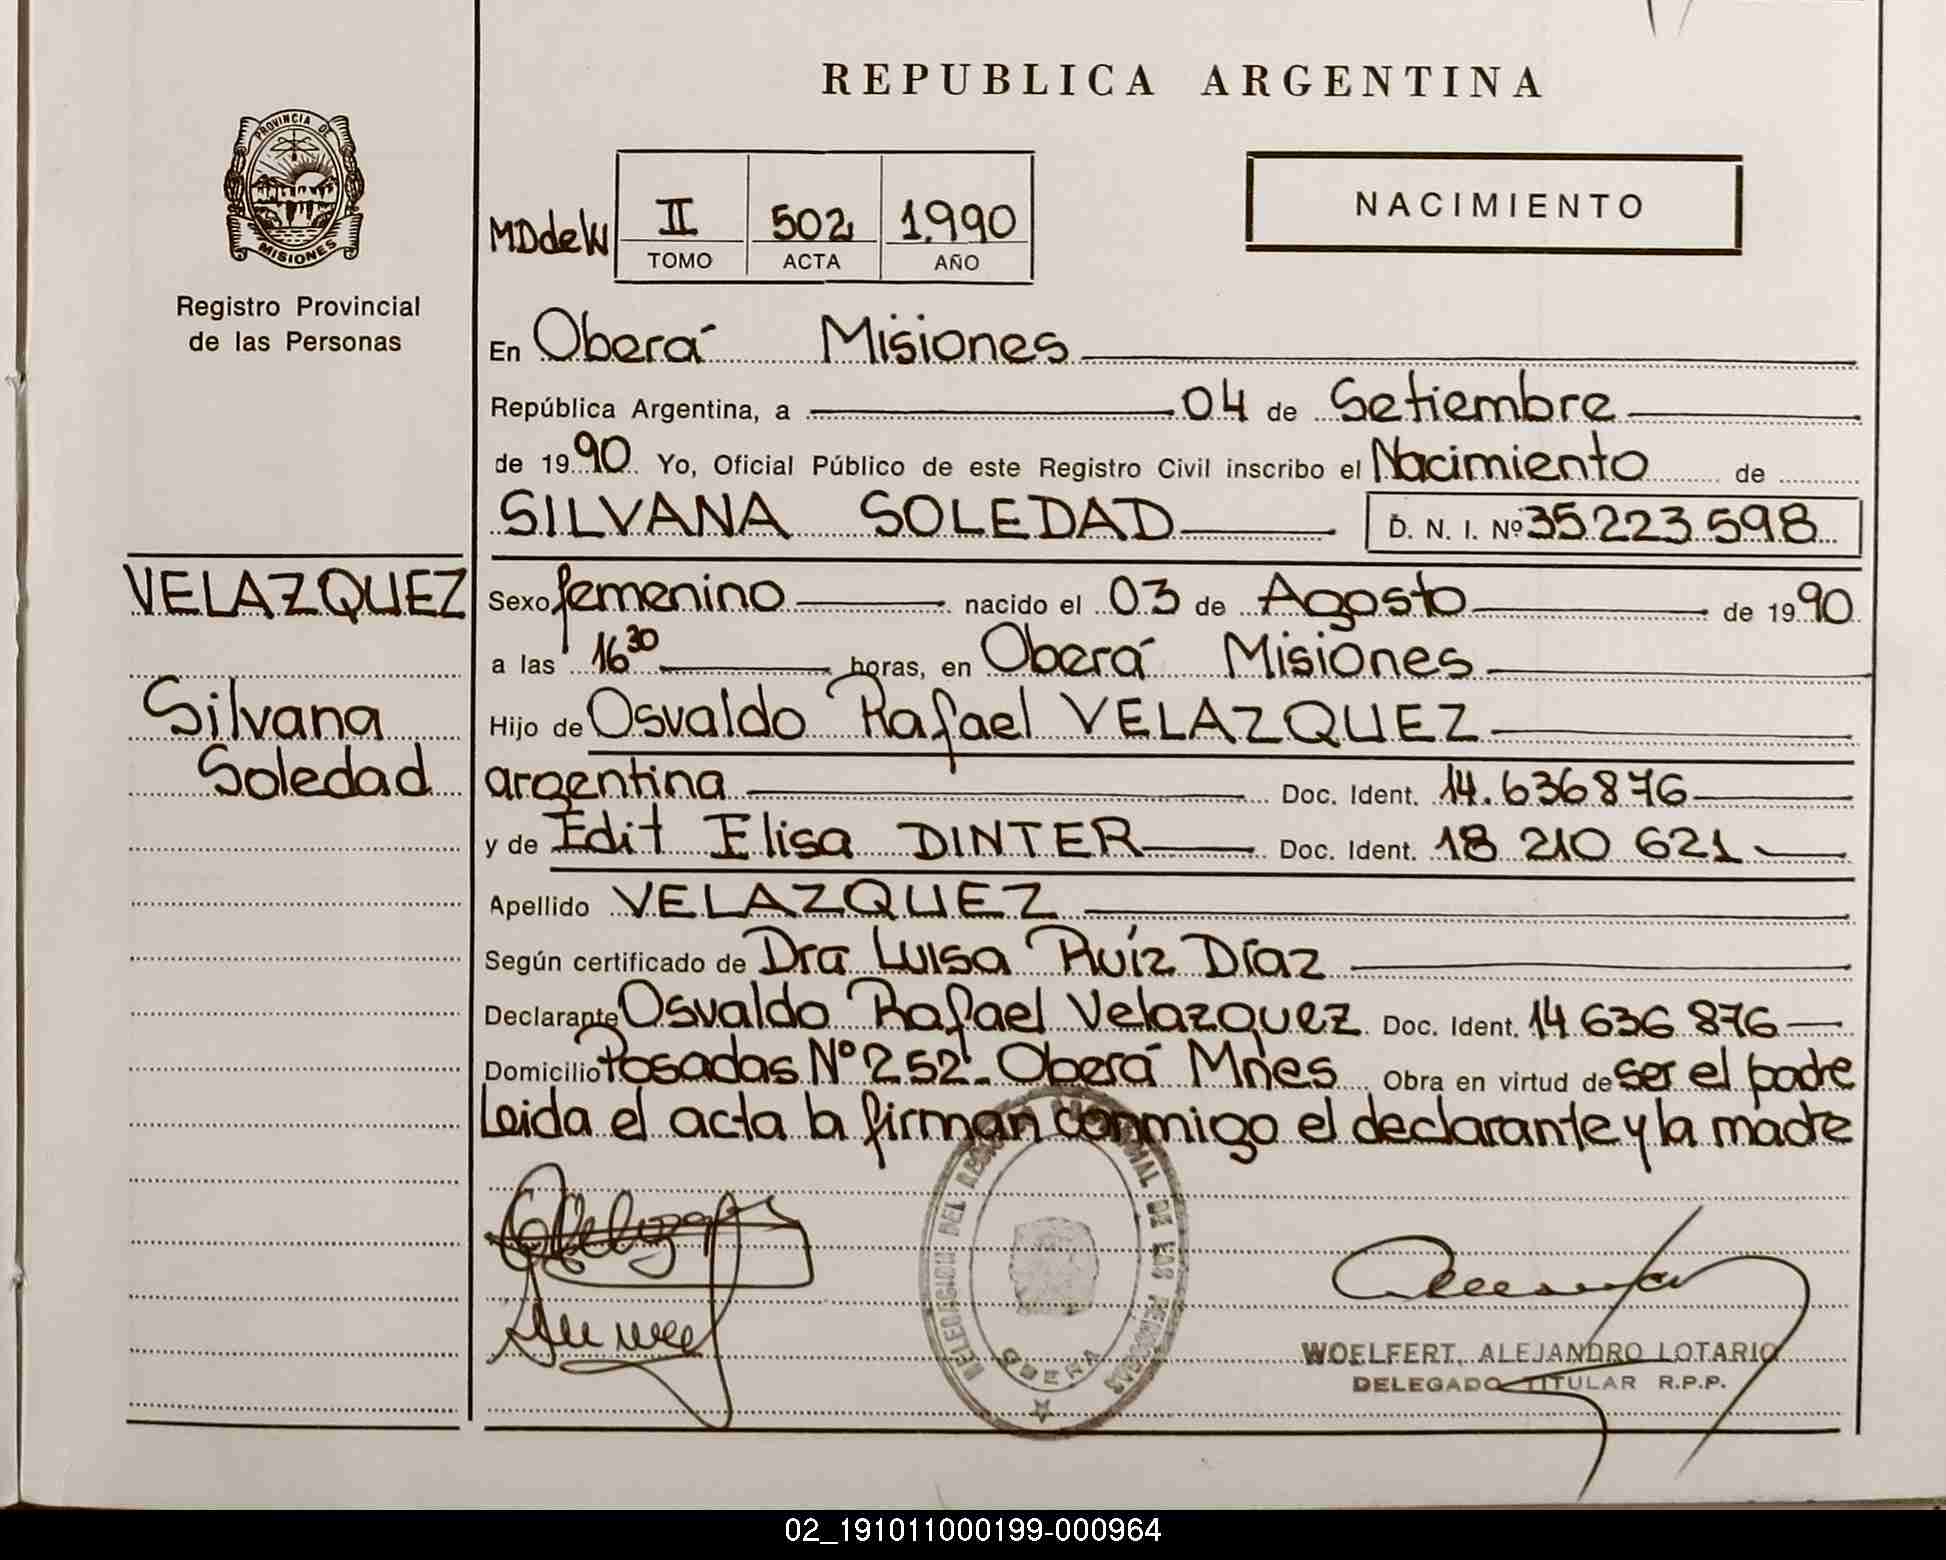 REPUBLICA ARGENTINA
PROVINCIA DE
MISIONES
Registro Provincial
de las Personas
NACIMIENTO
MDdeW II 502 1.990
TOMO ACTA AÑO
En Oberá Misiones
República Argentina, a 04 de Setiembre
de 1990 Yo, Oficial Público de este Registro Civil inscribo el Nacimiento de
SILVANA SOLEDAD D. N. I. Nº 35.223.598
VELAZQUEZ
Silvana
Soledad
Sexo femenino nacido el 03 de Agosto de 1990
a las 16 30 horas, en Oberá Misiones
Hijo de Osvaldo Rafael VELAZQUEZ
argentina Doc. Ident. 14.636876
y de Edit Elisa DINTER Doc. Ident. 18 210 621
Apellido VELAZQUEZ
Según certificado de Dra Luisa Ruíz Díaz
Declarante Osvaldo Rafael Velazquez Doc. Ident. 14 636 876
Domicilio Posadas Nº 252 - Oberá Mnes Obra en virtud de ser el padre
Leida el acta la firman conmigo el declarante y la madre
DELEGACION DEL REGISTRO PROVINCIAL DE LAS PERSONAS
OBERA
WOELFERT, ALEJANDRO LOTARIO
DELEGADO TITULAR R.P.P.
02_191011000199-000964